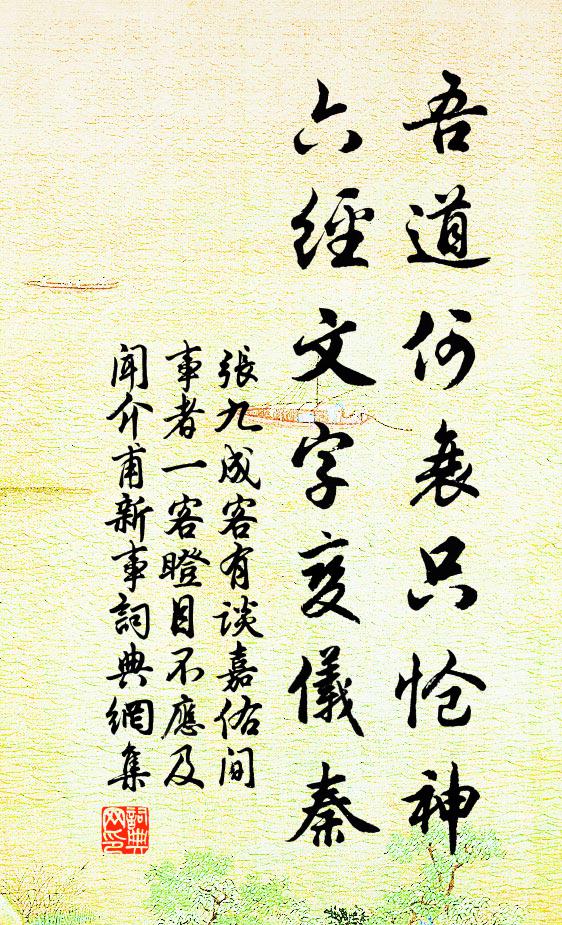 吾道何衰只怆神
六經文字变儀秦
張九成客有谈嘉佑间
事者一客瞪目不應及
闻介甫新事詞典網集
詞典网印